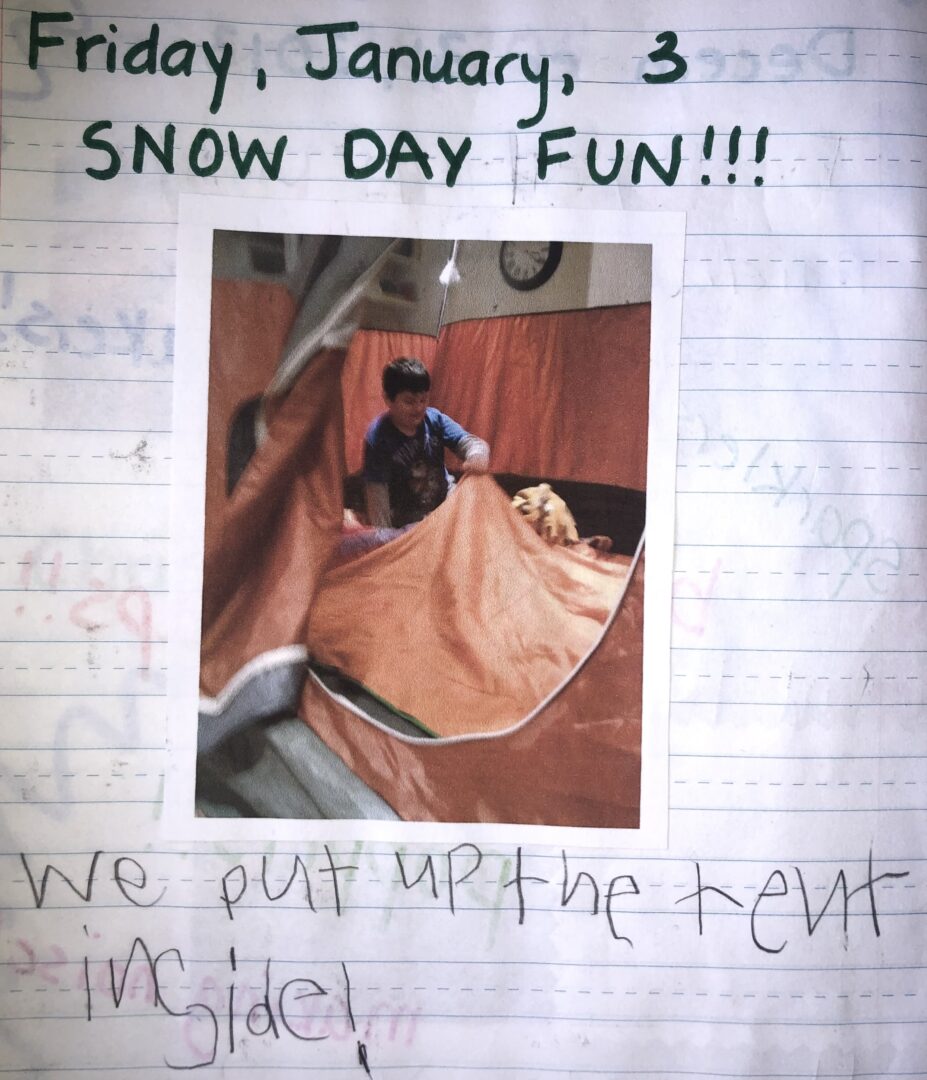 Friday, January, 3
SNOW DAY FUN!!!
we put up the tent
inside!